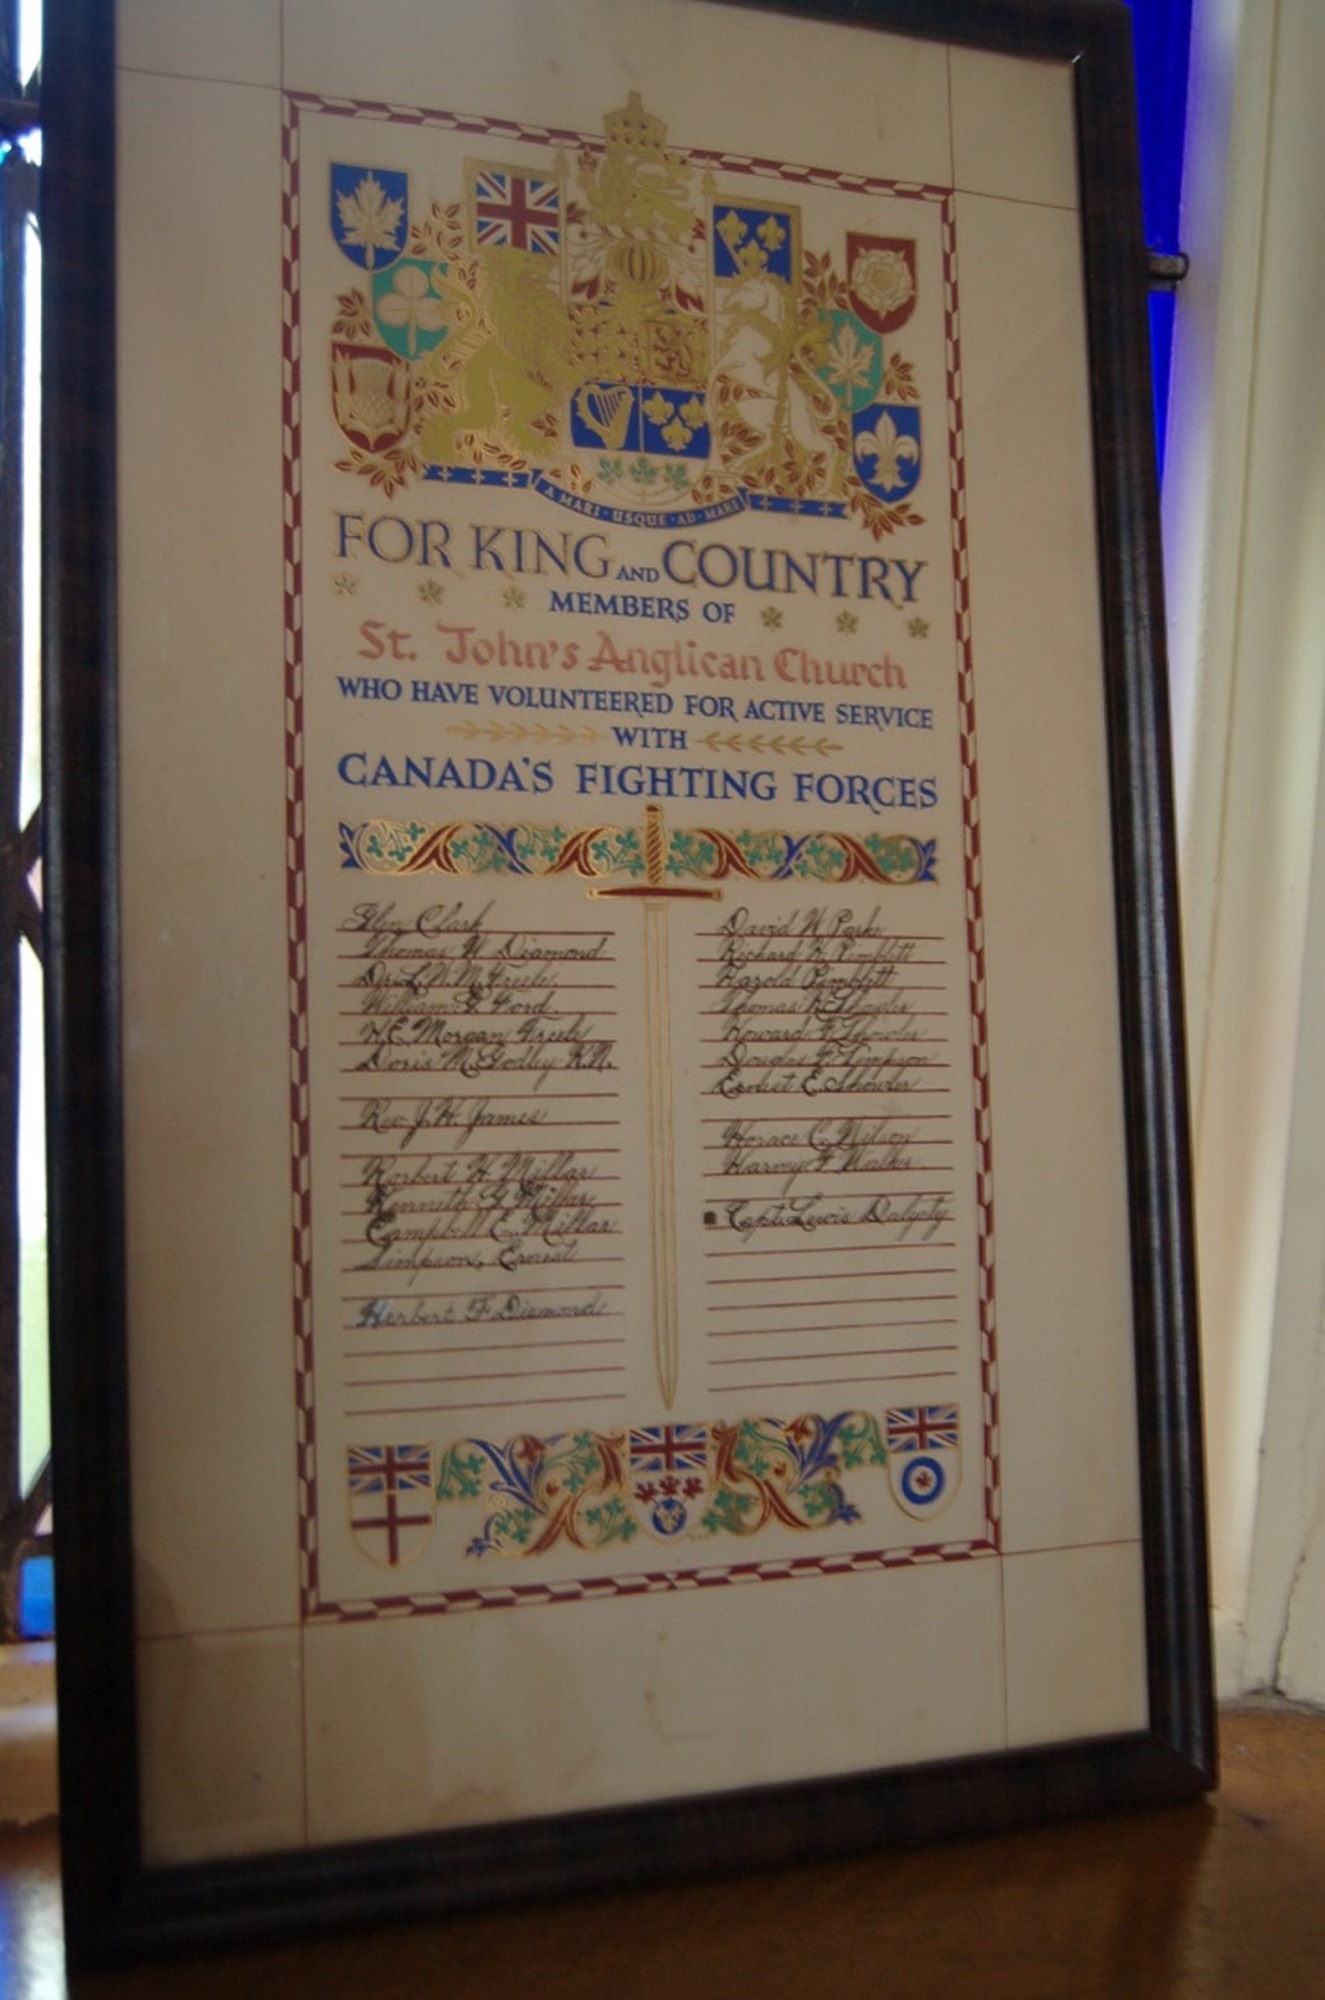 A MARI · USQUE · AD · MARE
FOR KING AND COUNTRY
MEMBERS OF
St. John's Anglican Church
WHO HAVE VOLUNTEERED FOR ACTIVE SERVICE
WITH
CANADA'S FIGHTING FORCES
Glen Clark
Thomas W. Diamond
Dr. L. N. M. Freele.
William F. Ford.
H. E. Morgan Freele
Doris M. Godley R.N.
Rev. J. H. James
Herbert H. Millar
Kenneth G. Millar
Campbell E. Millar
Simpson, Ernest
Herbert F. Diamond
David W. Parke
Richard K. Pimblett
Harold Pimblett
Thomas Showler
Howard F. Showler
Douglas F. Simpson
Ernest E. Showler
Horace C. Wilson
Harvey F. Walker.
Capt. Lewis Dalgety